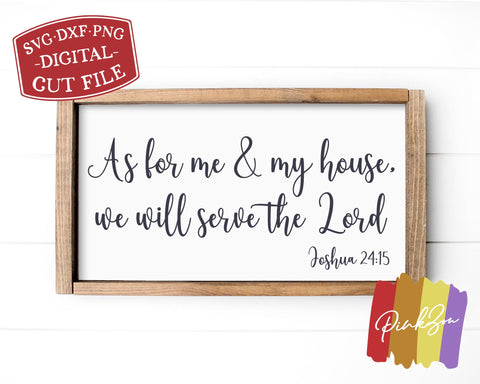 SVG·DXF·PNG
-DIGITAL-
CUT FILE
As for me & my house,
we will serve the Lord
Joshua 24:15
PinkZou